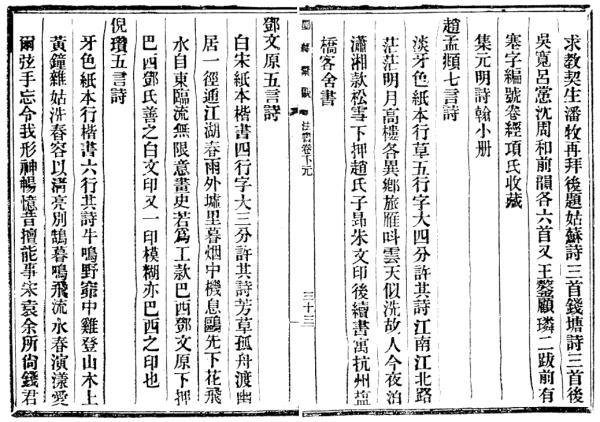 求教契生潘牧再拜後題姑蘇詩三首錢塘詩三首後
吳寬呂㦂沈周和前韻各六首又王鏊顧璘二跋前有
塞字編號卷經項氏收藏
集元明詩翰小册
趙孟頫七言詩
淡牙色紙本行草五行字大四分許其詩江南江北路
茫茫明月高樓各異鄉旅雁呌雲天似洗故人今夜泊
瀟湘款松雪下押趙氏子昂朱文印後續書寓杭州鹽
橋客舍書
墨緣彙觀 法書卷下元 三十三
鄧文原五言詩
白宋紙本楷書四行字大三分許其詩芳草孤舟渡幽
居一徑通江湖春雨外墟里暮烟中機息鷗先下花飛
水自東臨流無限意畫史若爲工款巴西鄧文原下押
巴西鄧氏善之白文印又一印模糊亦巴西之印也
倪瓚五言詩
牙色紙本行楷書六行其詩牛鳴野窌中雞登山木上
黃鐘雜姑洗春容以清亮別鵠暮鳴飛流水春演漾愛
爾弦手忘令我形神暢憶昔擅能事宋袁余所尙錢君